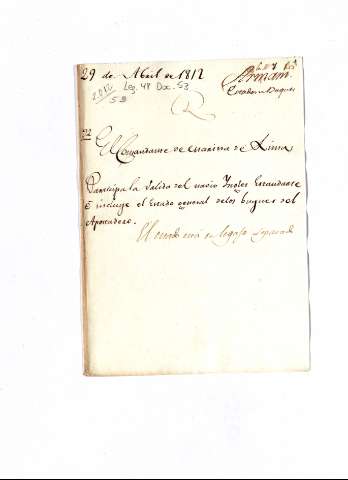 29 de Abril de 1812
Arman.
Estados de Buques
2016 Leg. 48 Doc. 53
53
32
El Comandante de Marina de Lima
Participa la salida del navio Yngles Estandarte
é incluye el Estado general de los buques del
Apostadero.
El estado está en legajo separado